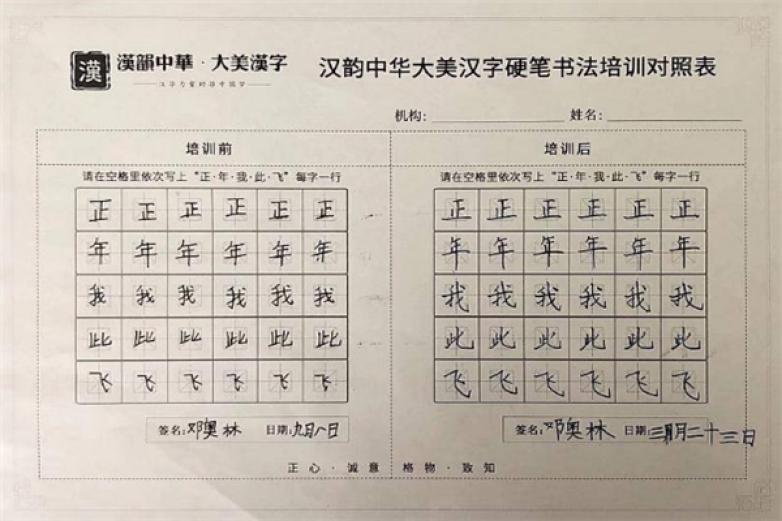 漢 漢韻中華·大美漢字 汉韵中华大美汉字硬笔书法培训对照表
机构: 姓名:
培训前
请在空格里依次写上“正·年·我·此·飞”每字一行
正 正 正 正 正 正
年 年 年 年 年 年
我 我 我 我 我 我
此 此 此 此 此 此
飞 飞 飞 飞 飞 飞
签名:邓奥林 日期:九月八日
培训后
请在空格里依次写上“正·年·我·此·飞”每字一行
正 正 正 正 正 正
年 年 年 年 年 年
我 我 我 我 我 我
此 此 此 此 此 此
飞 飞 飞 飞 飞 飞
签名:邓奥林 日期:三月二十三日
正心·诚意 格物·致知